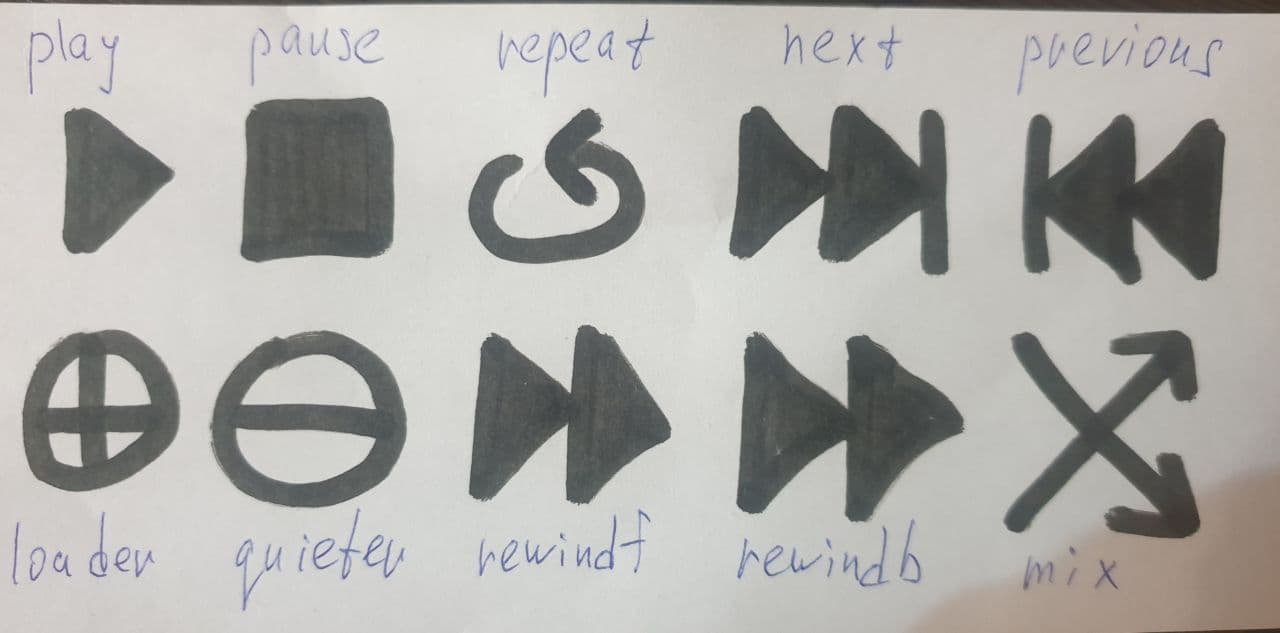 play pause repeat next previous
louder quieter rewindf rewindb mix